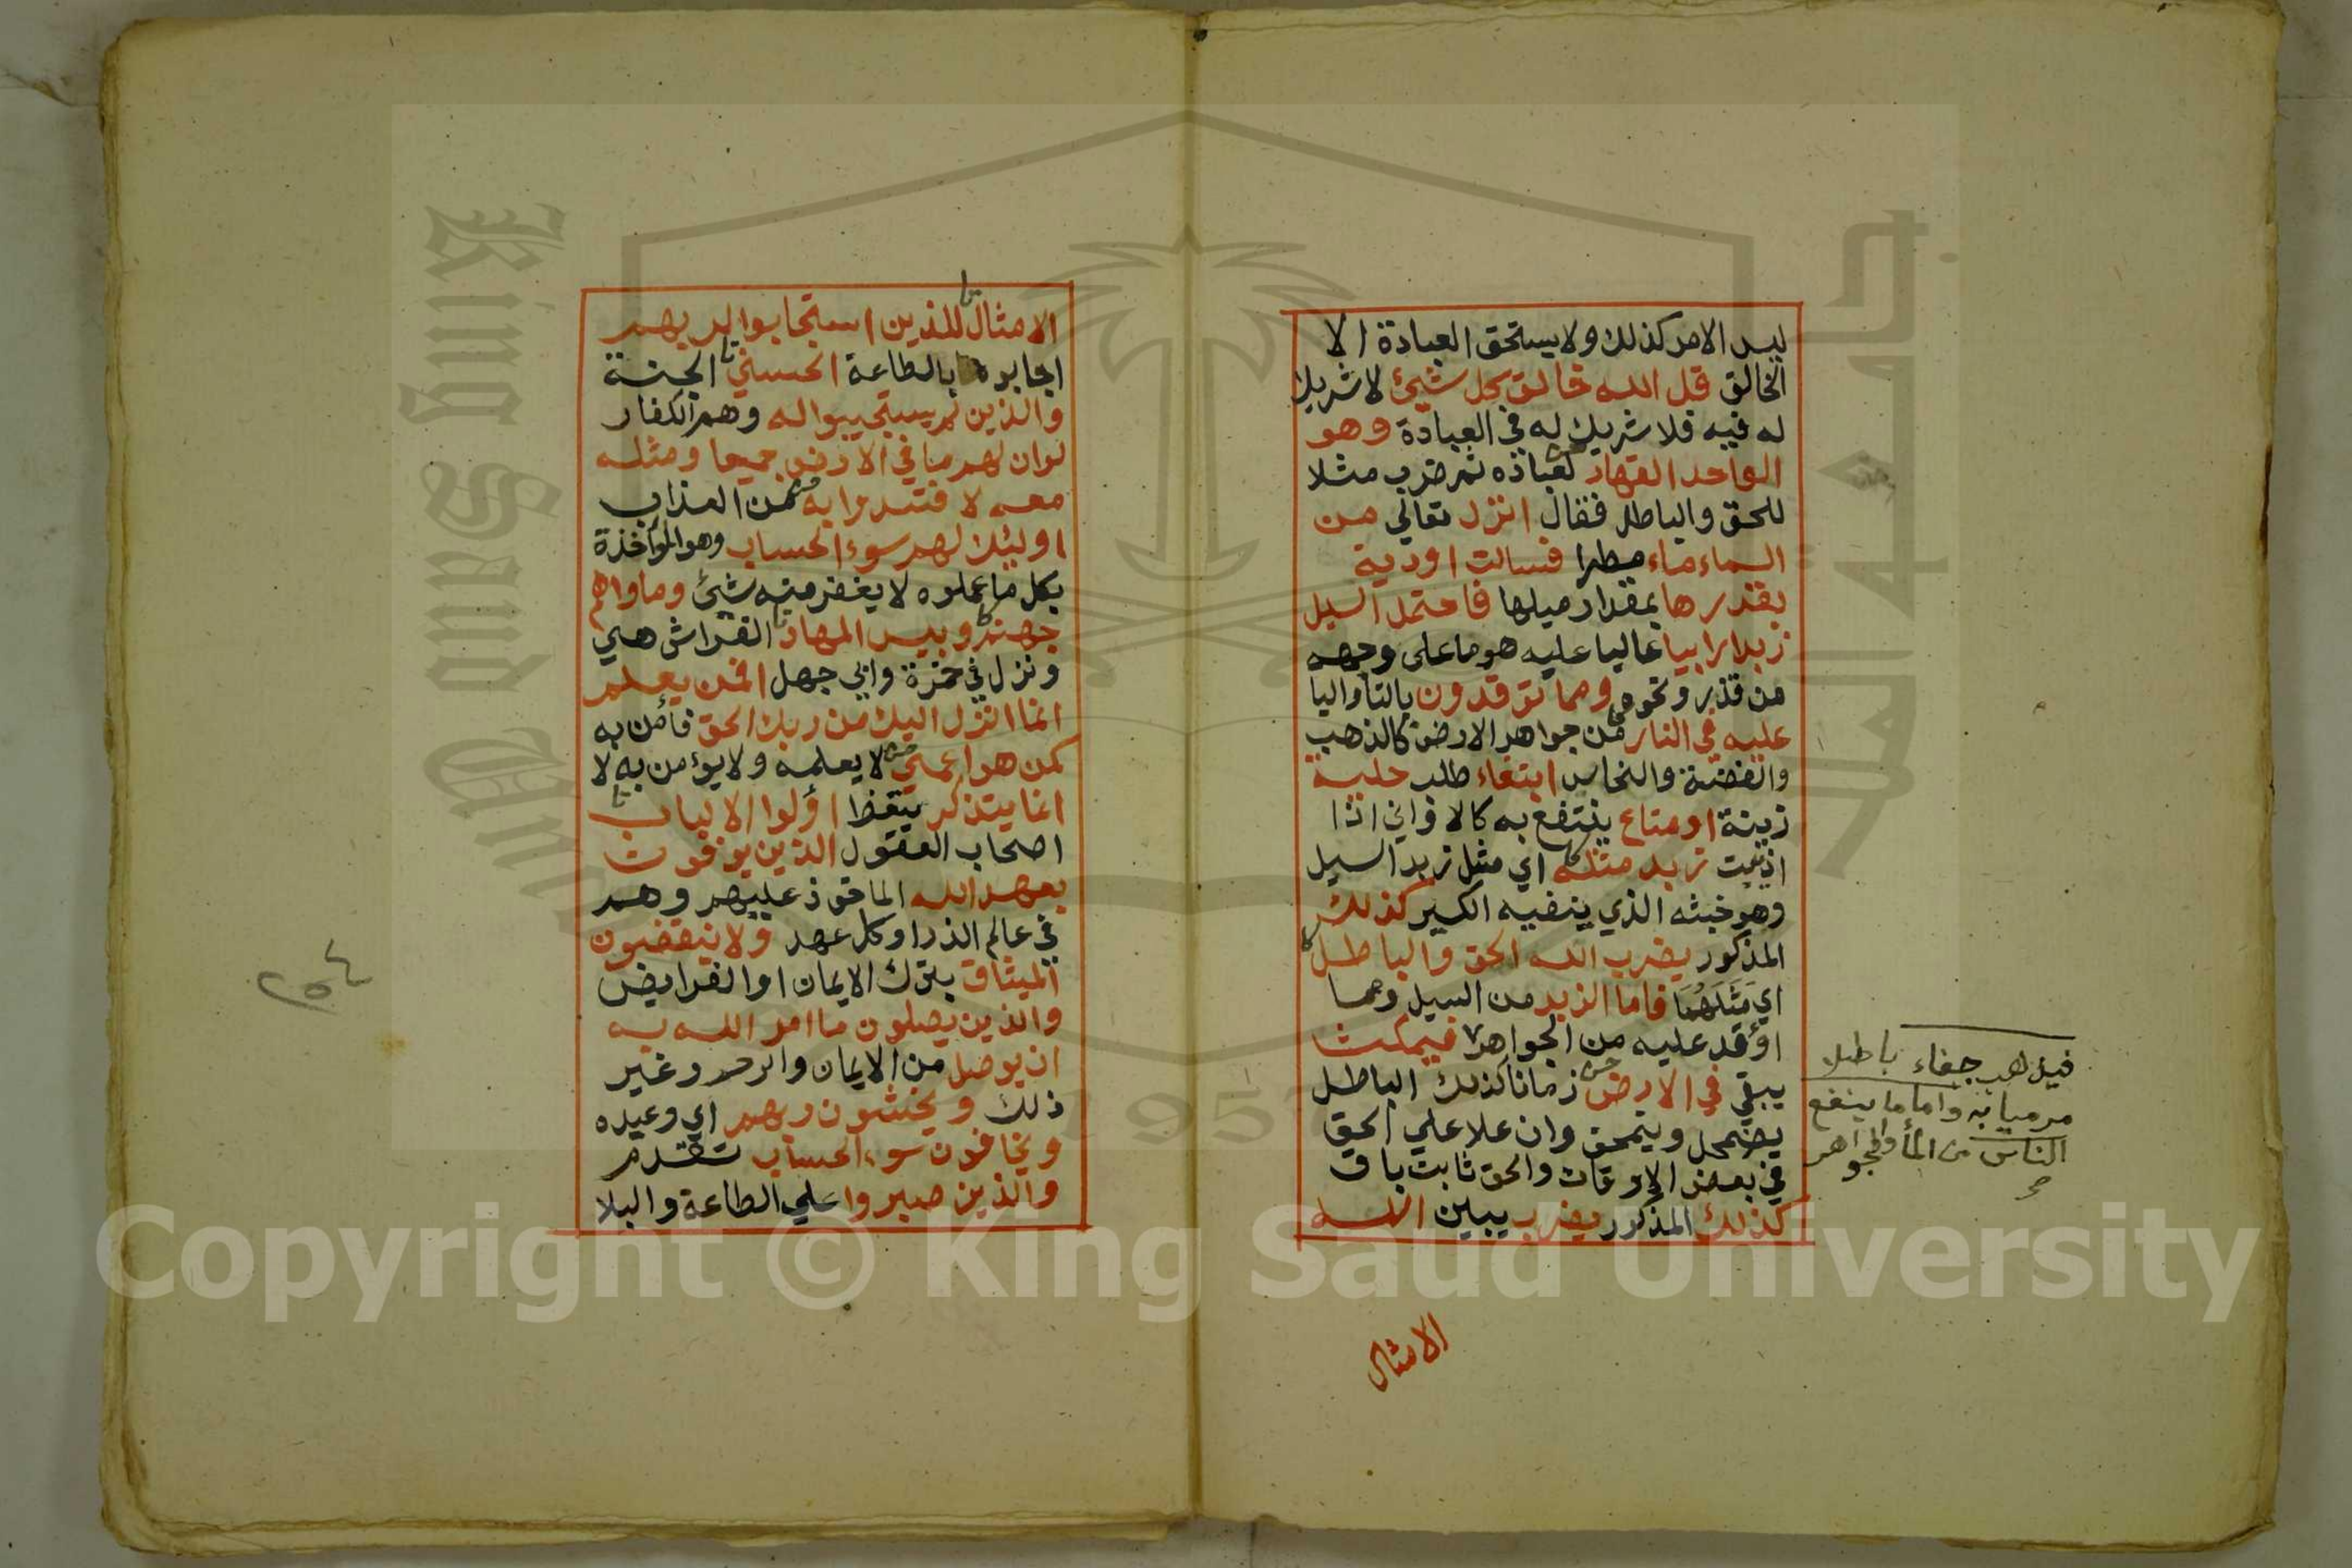 ليس الامر كذلك ولا يستحق العبادة الا
الخالق قل الله خالق كل شيئ لا شريك
له فيه فلا شريك له في العبادة وهو
الواحد القهار لعباده ثم ضرب مثلا
للحق والباطل فقال انزل تعالي من
السماء ماء مطرا فسالت اودية
بقدرها بمقدار ميلها فاحتمل السيل
زبدا رابيا عاليا عليه هو ما على وجهه
من قذر ونحوه ومما توقدون بالتا واليا
عليه في النار من جواهر الارض كالذهب
والفضة والنحاس ابتغاء طلب حلية
زينة او متاع ينتفع به كالاواني اذا
اذيبت زبد مثله اي مثل زبد السيل
وهو خبثه الذي ينفيه الكير كذلك
المذكور يضرب الله الحق والباطل
اي مَثَلَهُمَا فاما الزبد من السيل وما
اوقد عليه من الجواهر فيمكث
يبقي في الارض زمانا كذلك الباطل
يضمحل وينمحق وان علا علي الحق
في بعض الاوقات والحق ثابت باق
كذلك المذكور يضرب يبين الله
فيذهب جفاء باطلا
مرميا به واما ما ينفع
الناس من الما والجواهر
صح
الامثال
الامثال للذين استجابوا لربهم
اجابوه بالطاعة الحسني الجنة
والذين لم يستجيبوا له وهم الكفار
لو ان لهم ما في الارض جميعا ومثله
معه لافتدوا به من العذاب
اوليك لهم سوء الحساب وهو المؤاخذة
بكل ما عملوه لا يغفر منه شيئ وماواهم
جهنم وبيس المهاد الفراش هي
ونزل في حمزة وابي جهل افمن يعلم
انما انزل اليك من ربك الحق فأمن به
كمن هو اعمي لا يعلمه ولا يؤمن به لا
انما يتذكر يتعظ اولوا الالباب
اصحاب العقول الذين يوفون
بعهد الله الماخوذ عليهم وهم
في عالم الذر او كل عهد ولا ينقضون
الميثاق بترك الايمان او الفرايض
والذين يصلون ما امر الله به
ان يوصل من الايمان والرحم وغير
ذلك ويخشون ربهم اي وعيده
ويخافون سوء الحساب تقدم
والذين صبروا علي الطاعة والبلا
King Saud University
جامعة الملك
1957
Copyright © King Saud University